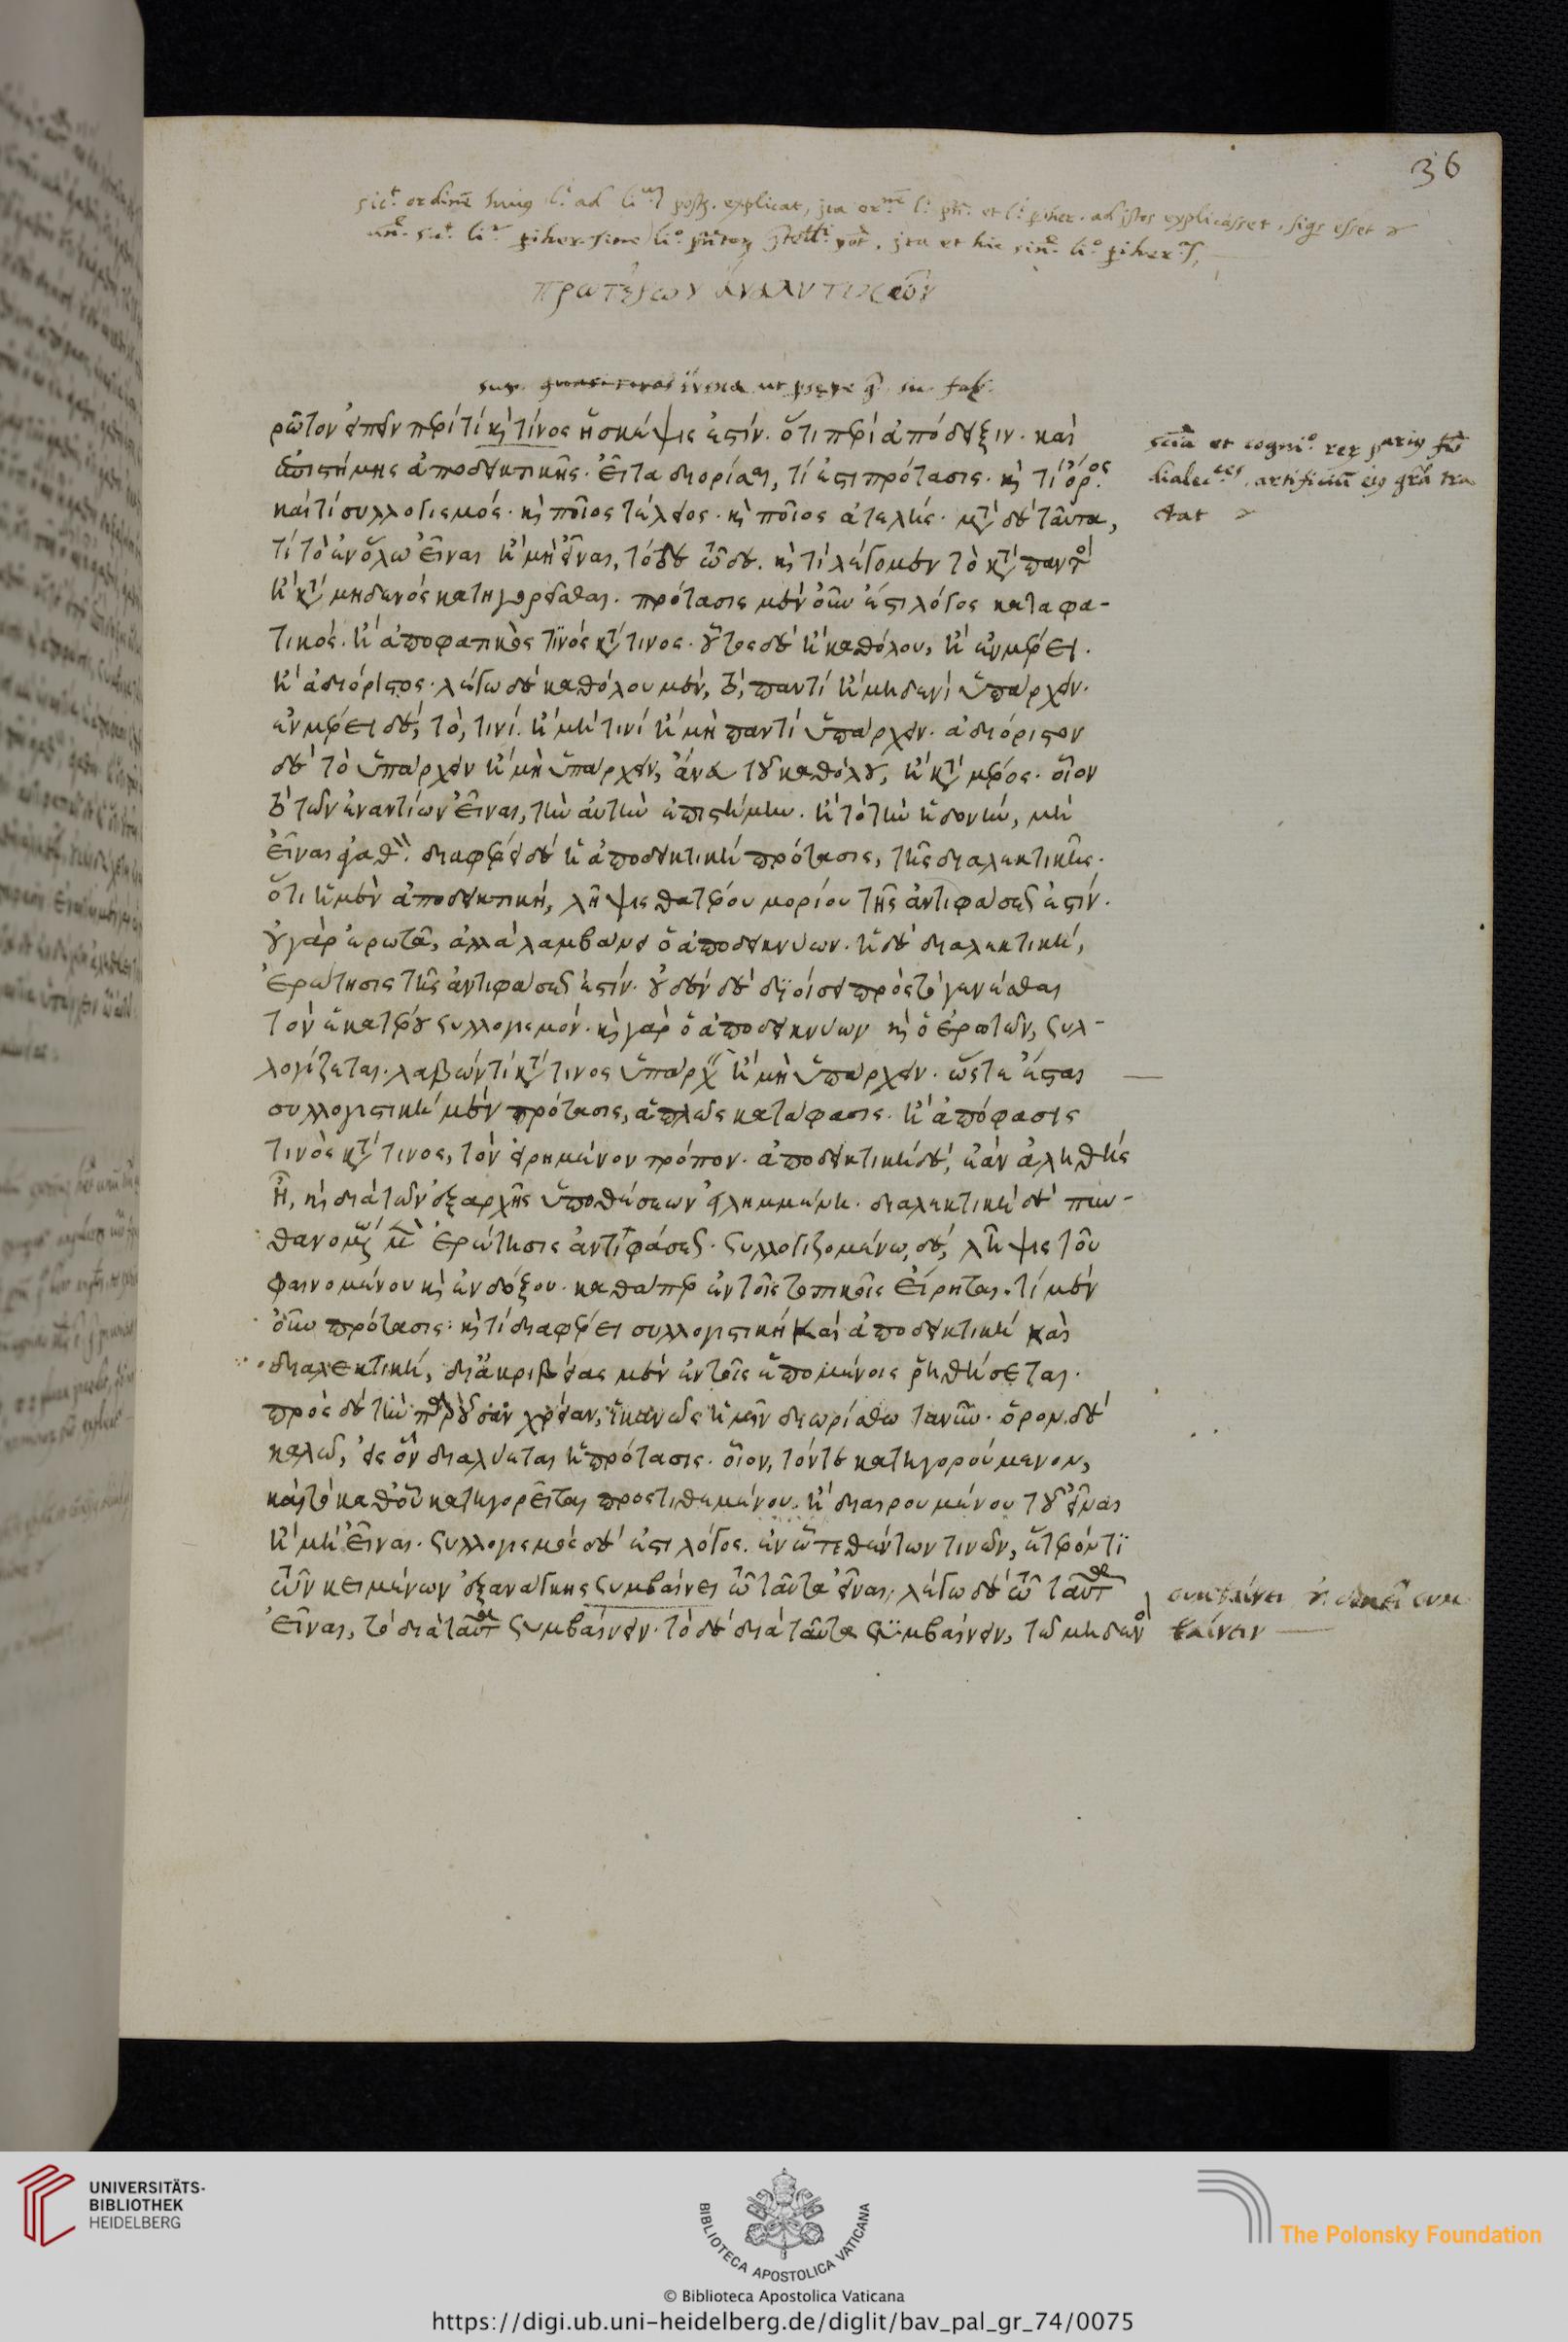 36
ordinem huius ad explicat, ita et ad istos explicasset, esset
ita et hic
πρωτέρων ἀναλυτικῶν
ἕνεκα ut
ρῶτον εἰπεῖν περὶ τί κ τίνος ἡ σκέψις ἐστίν. ὅτι περὶ ἀπόδειξιν. καὶ
ἐπιστήμης ἀποδεικτικῆς. εἶτα διορίσαι, τί ἐστι πρότασις. κ τί ὅρος
καὶ τί συλλογισμός. κ ποῖος τέλειος. κ ποῖος ἀτελής. μετὰ δὲ ταῦτα,
τί τὸ ἐν ὅλω εἶναι ἢ μὴ εἶναι, τόδε τῶδε. κ τί λέγομεν τὸ κατὰ παντὸς
ἢ κατὰ μηδενὸς κατηγορεῖσθαι. πρότασις μὲν οὖν ἐστι λόγος καταφα-
τικὸς. ἢ ἀποφατικὸς τινὸς κατά τινος. οὗτος δὲ ἢ καθόλου, ἢ ἐν μέρει.
ἢ ἀδιόριστος. λέγω δὲ καθόλου μὲν, τὸ, παντὶ ἢ μηδενὶ ὑπάρχειν.
ἐν μέρει δὲ, τὸ, τινί. ἢ μὴ τινὶ ἢ μὴ παντὶ ὑπάρχειν. ἀδιόριστον
δὲ τὸ ὑπάρχειν ἢ μὴ ὑπάρχειν, ἄνευ τοῦ καθόλου, ἢ κατὰ μέρος. οἷον
τὸ τῶν ἐναντίων εἶναι, τὴν αὐτὴν ἐπιστήμην. ἢ τὸ τὴν ἡδονὴν, μὴ
εἶναι ἀγαθόν. διαφέρει δὲ ἡ ἀποδεικτικὴ πρότασις, τῆς διαλεκτικῆς.
ὅτι ἡ μὲν ἀποδεικτική, λῆψις θατέρου μορίου τῆς ἀντιφάσεώς ἐστίν.
οὐ γὰρ ἐρωτᾶ, ἀλλὰ λαμβάνει ὁ ἀποδεικνύων. ἡ δὲ διαλεκτική,
ἐρώτησις τῆς ἀντιφάσεώς ἐστίν. οὐδὲν δὲ διοίσει πρὸς τὸ γενέσθαι
τὸν ἑκατέρου συλλογισμόν. κ γὰρ ὁ ἀποδεικνύων κ ὁ ἐρωτῶν, συλ-
λογίζεται. λαβών τί κατά τινος ὑπάρχειν ἢ μὴ ὑπάρχειν. ὥστε ἔσται
συλλογιστικὴ μὲν πρότασις, ἁπλῶς κατάφασις. ἢ ἀπόφασις
τινὸς κατά τινος, τὸν εἰρημένον τρόπον. ἀποδεικτικὴ δὲ, ἐὰν ἀληθὴς
ἦ, κ διὰ τῶν ἐξ αρχῆς ὑποθέσεων εἰλημμένη. διαλεκτικὴ δὲ πυν-
θανομένω μὲν ἐρώτησις ἀντιφάσεως. συλλογιζομένω, δὲ, λῆψις τοῦ
φαινομένου κ ἐνδόξου. καθάπερ ἐν τοῖς τοπικοῖς εἴρηται. τί μὲν
οὖν πρότασις. κ τί διαφέρει συλλογιστικὴ καὶ ἀποδεικτικὴ καὶ
διαλεκτική, δι ἀκριβείας μὲν ἐν τοῖς ἑπομένοις ῥηθήσεται.
πρὸς δὲ τὴν παροῦσαν χρείαν, ἱκανῶς ἡμῖν διωρίσθω τανῦν. ὅρον δὲ
καλῶ, εἰς ὃν διαλύεται ἡ πρότασις. οἷον, τόν τε κατηγορούμενον,
καὶ τὸ καθ οὗ κατηγορεῖται προστιθεμένου. ἢ διαιρουμένου τοῦ εἶναι
ἢ μὴ εἶναι. συλλογισμὸς δέ ἐστι λόγος. ἐν ὧ τεθέντων τινῶν, ἕτερόν τι
τῶν κειμένων ἐξ ανάγκης συμβαίνει τῶ ταῦτα εἶναι, λέγω δὲ τῶ ταῦτα
εἶναι, τὸ διὰ ταῦτα συμβαίνειν. τὸ δὲ διὰ ταῦτα συμβαίνειν, τὸ μηδενὸς
et
artificium eius gratia tra
ctat
συμβαίνει συμ
βαίνειν
UNIVERSITÄTS-
BIBLIOTHEK
HEIDELBERG
BIBLIOTECA APOSTOLICA VATICANA
The Polonsky Foundation
© Biblioteca Apostolica Vaticana
https://digi.ub.uni-heidelberg.de/diglit/bav_pal_gr_74/0075